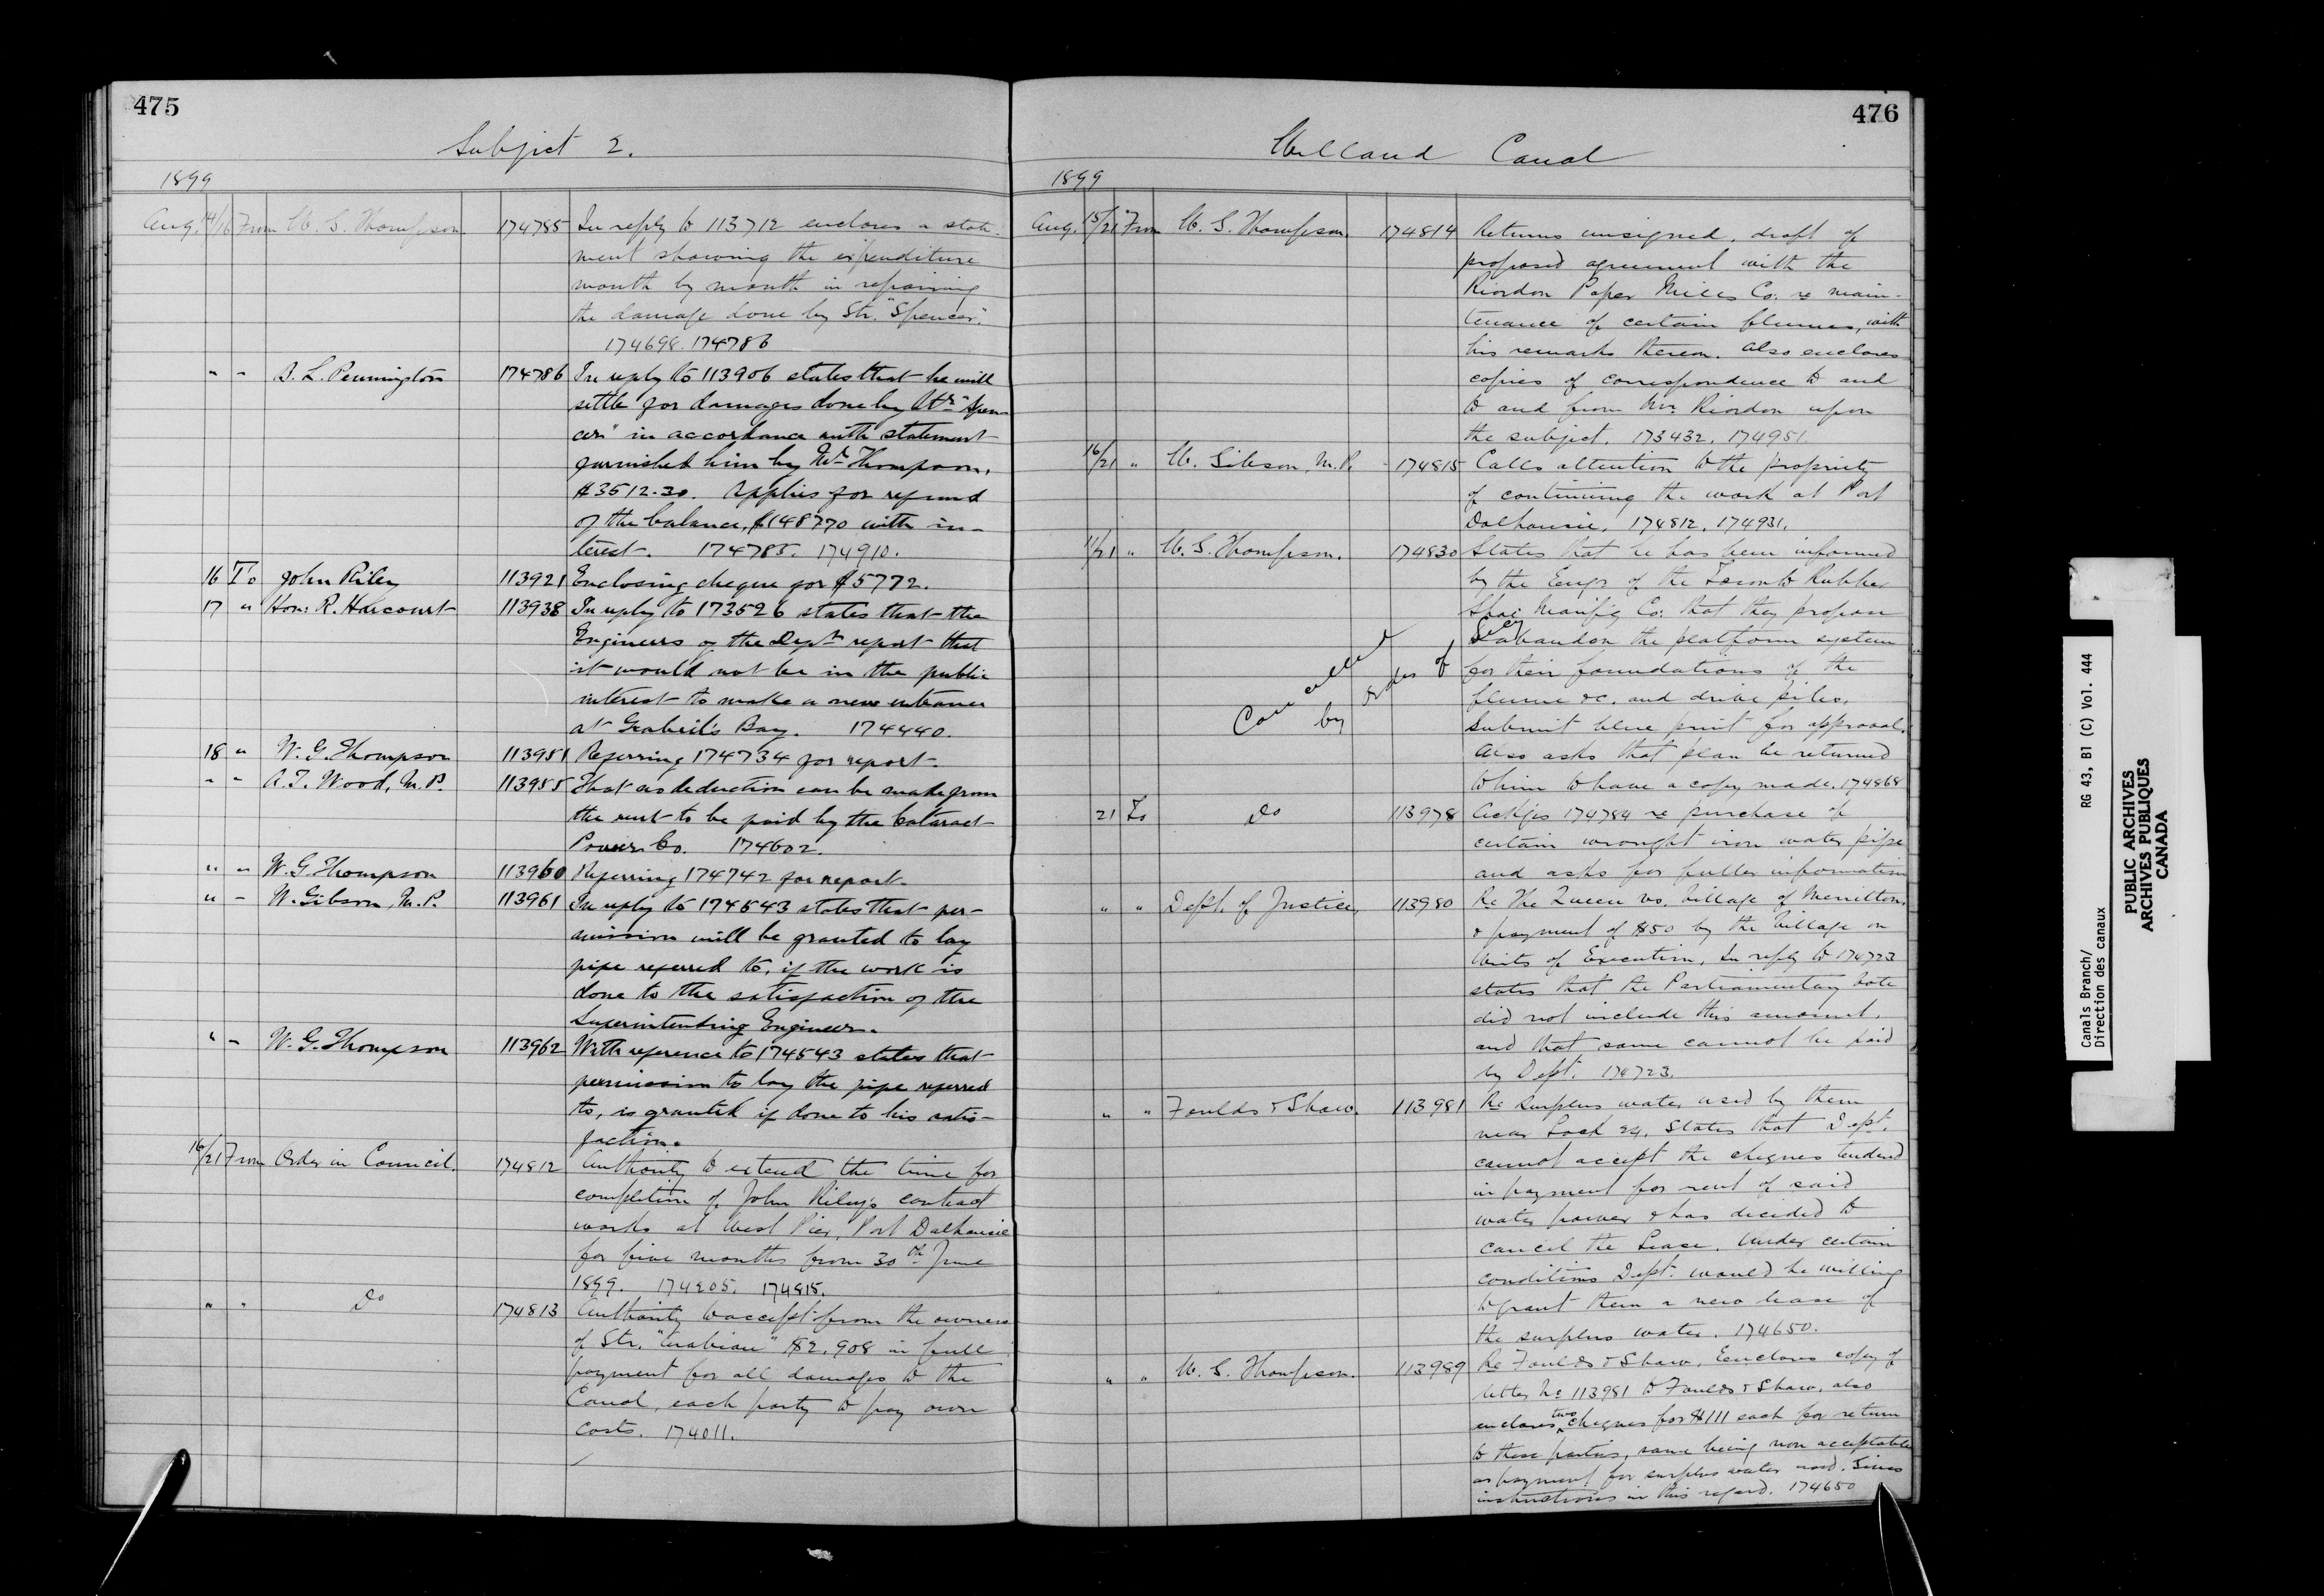 475
Subject 2.
1899
Aug. 14/16 From W. G. Thompson. 174785 In reply to 113712 encloses a state-
ment showing the expenditure
month by month in repairing
the damage done by Str. "Spencer".
174698. 174786
" " D. L. Pennington 174786 In reply to 113906 states that he will
settle for damages done by Str. "Spen-
cer" in accordance with statement
furnished him by Mr. Thompson,
$3512.30. Applies for refund
of the balance, $1487.70 with in-
terest. 174785. 174910.
16 To John Riley 113921 Enclosing cheque for $5772.
17 " Hon: R. Harcourt 113938 In reply to 173526 states that the
Engineers of the Dept. report that
it would not be in the public
interest to make a new entrance
at Grabiel's Bay. 174440.
18 " W. G. Thompson 113951 Referring 174734 for report.
" " A. T. Wood, M.P. 113955 That no deduction can be made from
the rent to be paid by the Cataract
Power Co. 174602.
" " W. G. Thompson 113960 Referring 174742 for report.
" " W. Gibson, M.P. 113961 In reply to 174543 states that per-
mission will be granted to lay
pipe referred to, if the work is
done to the satisfaction of the
Superintending Engineer.
" " W. G. Thompson 113962 With reference to 174543 states that
permission to lay the pipe referred
to, is granted if done to his satis-
faction.
16/21 From Order in Council. 174812 Authority to extend the time for
completion of John Riley's contract
works at West Pier, Port Dalhousie
for five months from 30th June
1899. 174205. 174815.
" " Do 174813 Authority to accept from the owners
of Str. "Arabian" $2,908 in full
payment for all damages to the
Canal, each party to pay own
costs. 174011.
476
Welland Canal
1899
Aug. 15/21 From W. G. Thompson. 174814 Returns unsigned, draft of
proposed agreement with the
Riordon Paper Mills Co: re main-
tenance of certain flumes, with
his remarks thereon. Also encloses
copies of correspondence to and
to and from Mr. Riordon upon
the subject. 173432. 174951.
16/21 " W. Gibson, M.P. 174815 Calls attention to the propriety
of continuing the work at Port
Dalhousie. 174812, 174931.
11/21 " W. G. Thompson. 174830 States that he has been informed
by the Engr of the Toronto Rubber
Shoe Manufg Co: that they propose
to abandon the platform system
for their foundations of the
flume &c. and drive piles.
Submit blue print for approval.
Also asks that plan be returned
to him to have a copy made. 174868
Cancelled
by order of Secy
21 To Do 113978 Ackgs 174784 re purchase of
certain wrought iron water pipe
and asks for fuller information
" " Dept. of Justice, 113980 Re The Queen vs. Village of Merritton,
& payment of $850 by the Village on
Writs of Execution, In reply to 174723
states that the Parliamentary vote
did not include this amount,
and that same cannot be paid
by Dept. 174723.
" " Foulds & Shaw. 113981 Re Surplus water used by them
near Lock 24. States that Dept.
cannot accept the cheques tendered
in payment for rent of said
water power & has decided to
cancel the Lease. Under certain
conditions Dept. would be willing
to grant them a new lease of
the surplus water. 174650.
" " W. G. Thompson. 113989 Re Foulds & Shaw. Encloses copy of
letter No 113981 to Foulds & Shaw, also
encloses two cheques for $111 each for return
to these parties, same being non acceptable
as payment for surplus water used. Gives
instructions in this regard. 174650
Canals Branch/ RG 43, B1 (C) Vol. 444
Direction des canaux
PUBLIC ARCHIVES
ARCHIVES PUBLIQUES
CANADA